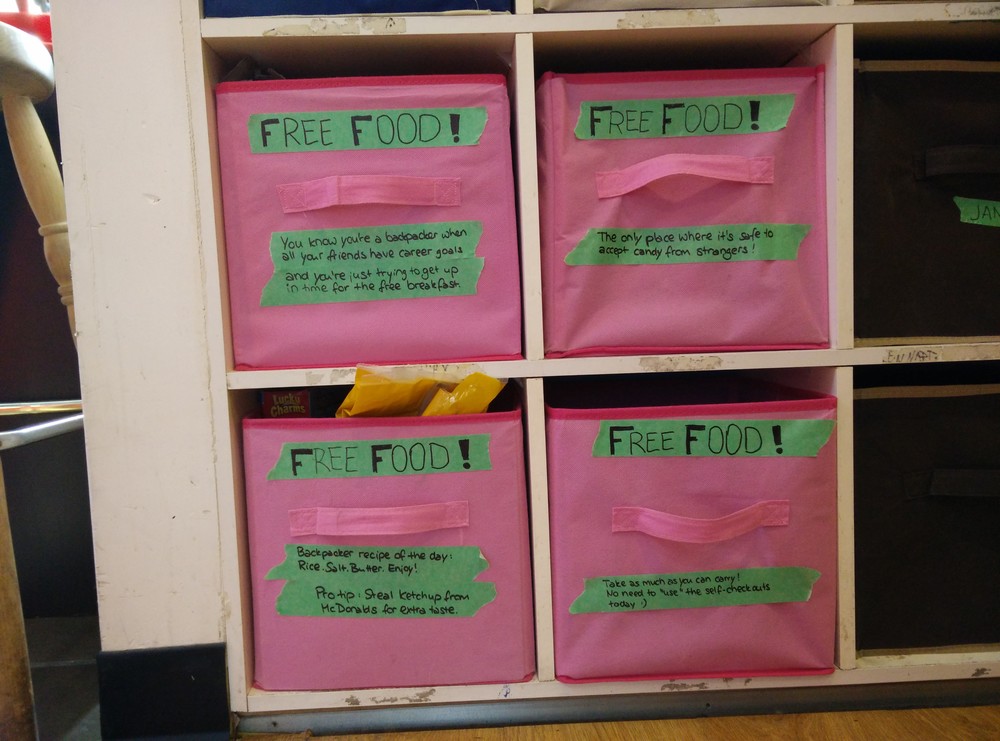 FREE FOOD!
You know you're a backpacker when
all your friends have career goals
and you're just trying to get up
in time for the free breakfast.
FREE FOOD!
The only place where it's safe to
accept candy from strangers!
JAN
Lucky
Charms
FREE FOOD!
Backpacker recipe of the day:
Rice. Salt. Butter. Enjoy!
Pro tip: Steal ketchup from
McDonalds for extra taste.
FREE FOOD!
Take as much as you can carry!
No need to "use" the self-checkouts
today :)